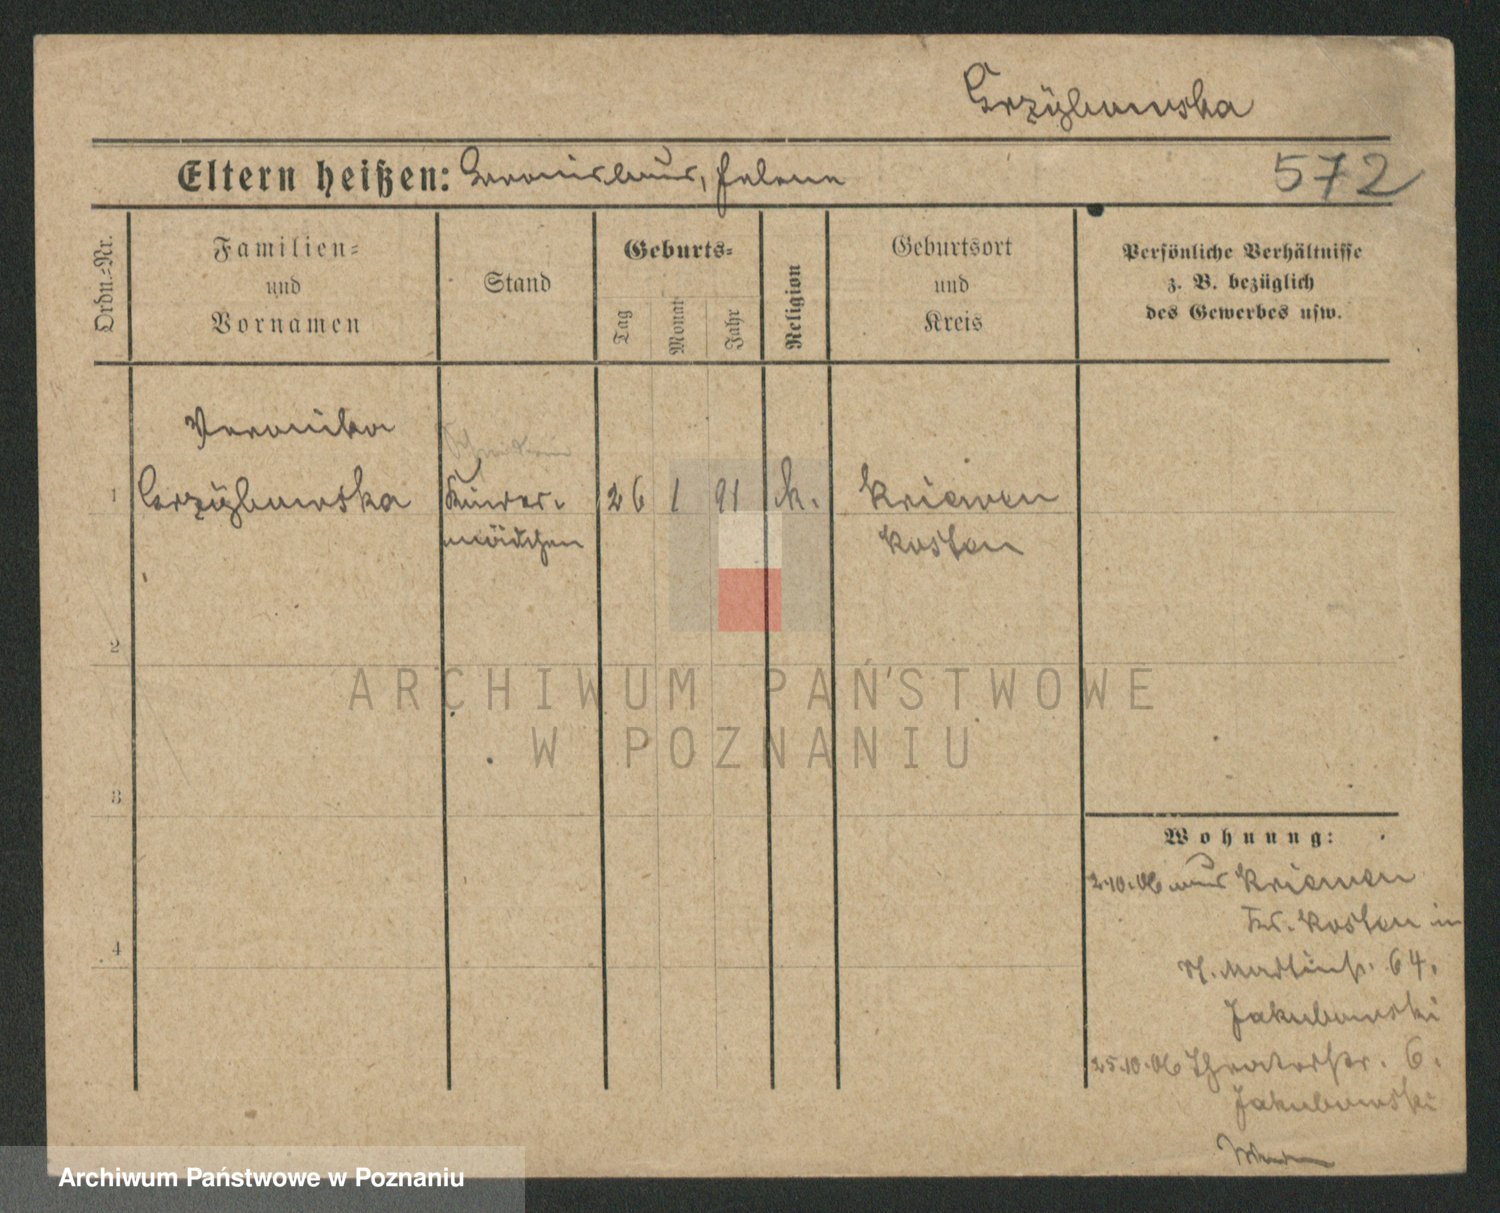 Grzybowska
Eltern heißen:
572
Ordn.=Nr.
Familien=
und
Vornamen
Stand
Geburts=
Tag
Monat
Jahr
Religion
Geburtsort
und
Kreis
Persönliche Verhältnisse
z. B. bezüglich
des Gewerbes usw.
Veronika
1 Grzybowska Kinder- 26 1 91 k. Kriewen
mädchen Kosten
2
3
4
Wohnung:
2.10.06 aus Kriewen
Kr. Kosten in
St. Martinstr. 64.
Jakubowski
25.10.06 Theaterstr. 6.
Jakubowski
ARCHIWUM PAŃSTWOWE
W POZNANIU
Archiwum Państwowe w Poznaniu